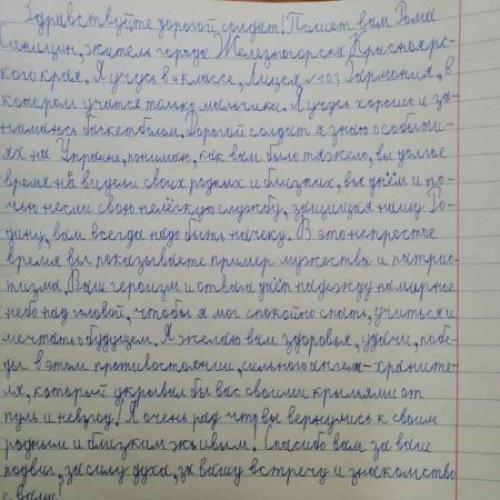 Здравствуйте дорогой солдат! Пишет вам Рома
Синицин, житель города Железногорска Красноярс-
кого края. Я учусь в 4 классе, Лицея №103 „Гармония", в
котором учатся только мальчики. Я учусь хорошо и за-
нимаюсь баскетболом. Дорогой солдат я знаю о событи-
ях на Украине, понимаю, как вам было тяжело, вы долгое
время не видели своих родных и близких, вы днём и но-
чью несли свою нелёгкую службу, защищая нашу Ро-
дину, вам всегда надо быть начеку. В это непростое
время вы показываете пример мужества и патрио-
тизма. Ваш героизм и отвага даёт надежду на мирное
небо над головой, чтобы я мог спокойно спать, учиться и
мечтать о будущем. Я желаю вам здоровья, удачи, побе-
ды в этом противостоянии, сильного ангела-храните-
ля, который укрывал бы вас своими крыльями от
пуль и невзгод! Я очень рад что вы вернулись к своим
родным и близким живым! Спасибо вам за ваш
подвиг, за силу духа, за вашу встречу и знакомство
с вами